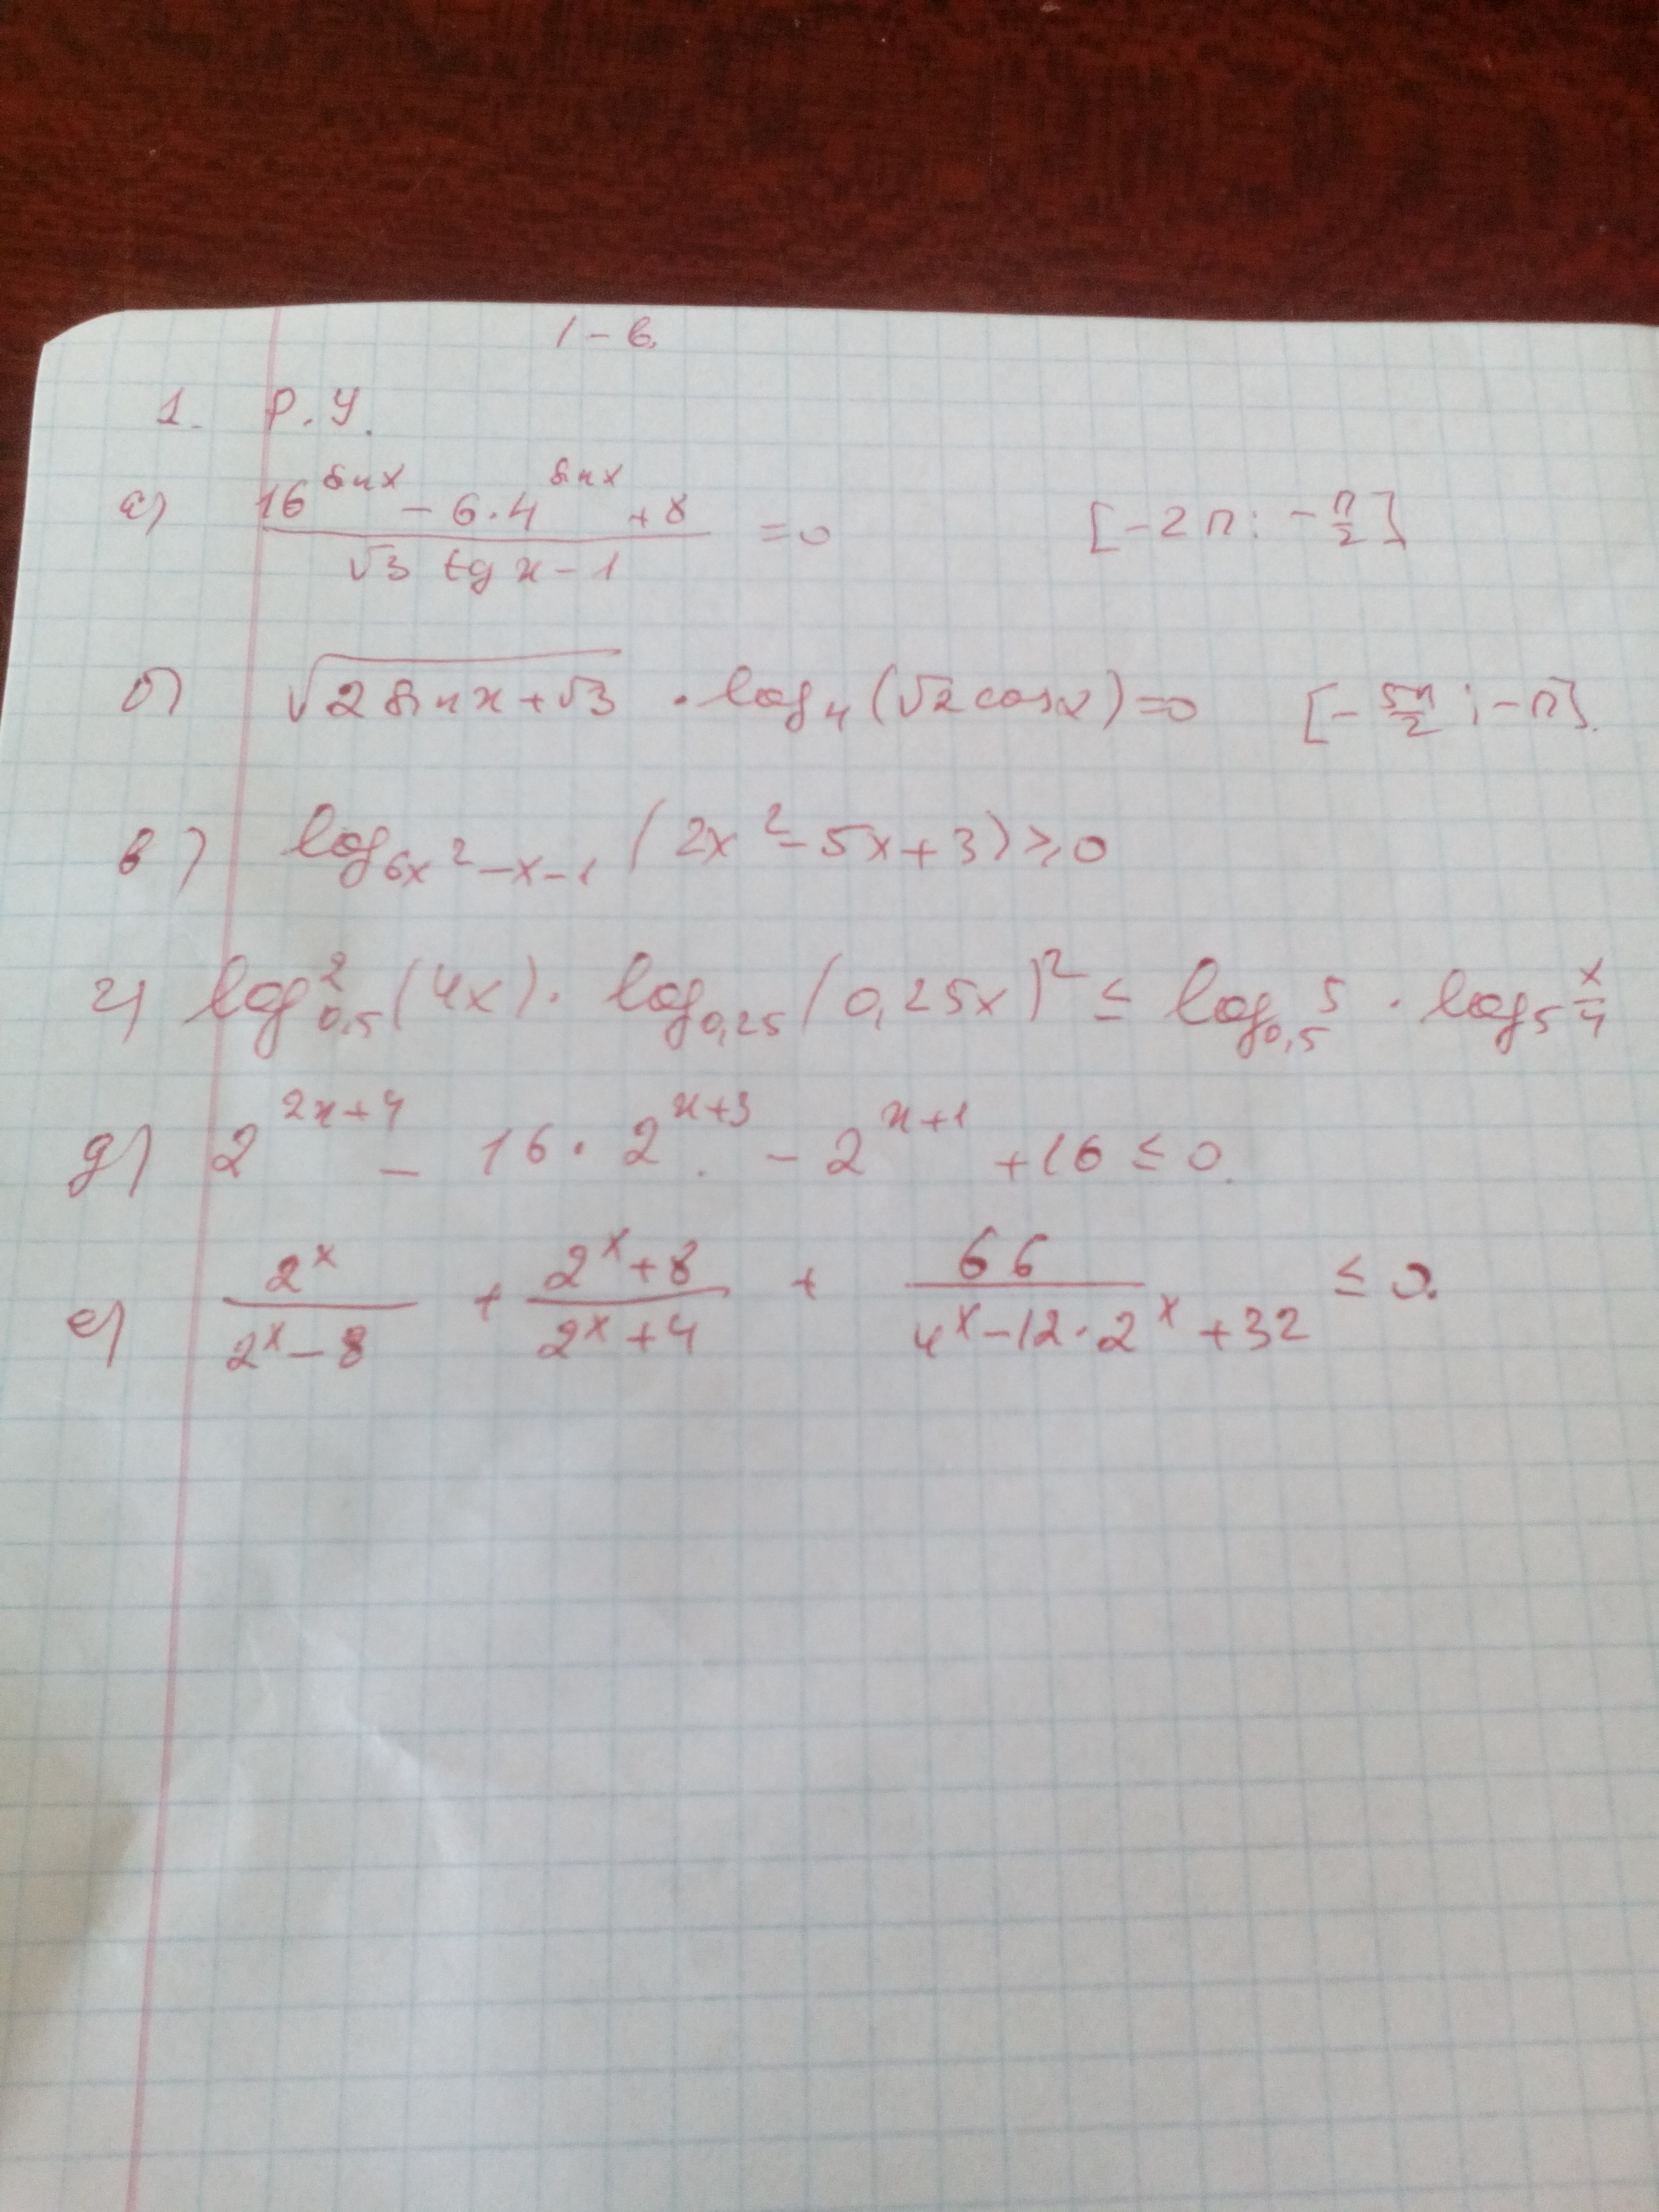 1-в.
1. Р.У.
а) (16^(sin x) - 6·4^(sin x) + 8)/(√3 tg x - 1) = 0 [-2π; -π/2]
б) √(2 sin x + √3) · log₄(√2 cos x) = 0 [-5π/2; -π].
в) log_(6x²-x-1) (2x² - 5x + 3) ≥ 0
г) log²_(0,5) (4x) · log_(0,25) (0,25x)² ≤ log_(0,5) 5 · log₅ x/4
д) 2^(2x+4) - 16·2^(x+3) - 2^(x+1) + 16 ≤ 0.
е) 2^x/(2^x - 8) + (2^x + 8)/(2^x + 4) + 66/(4^x - 12·2^x + 32) ≤ 0.